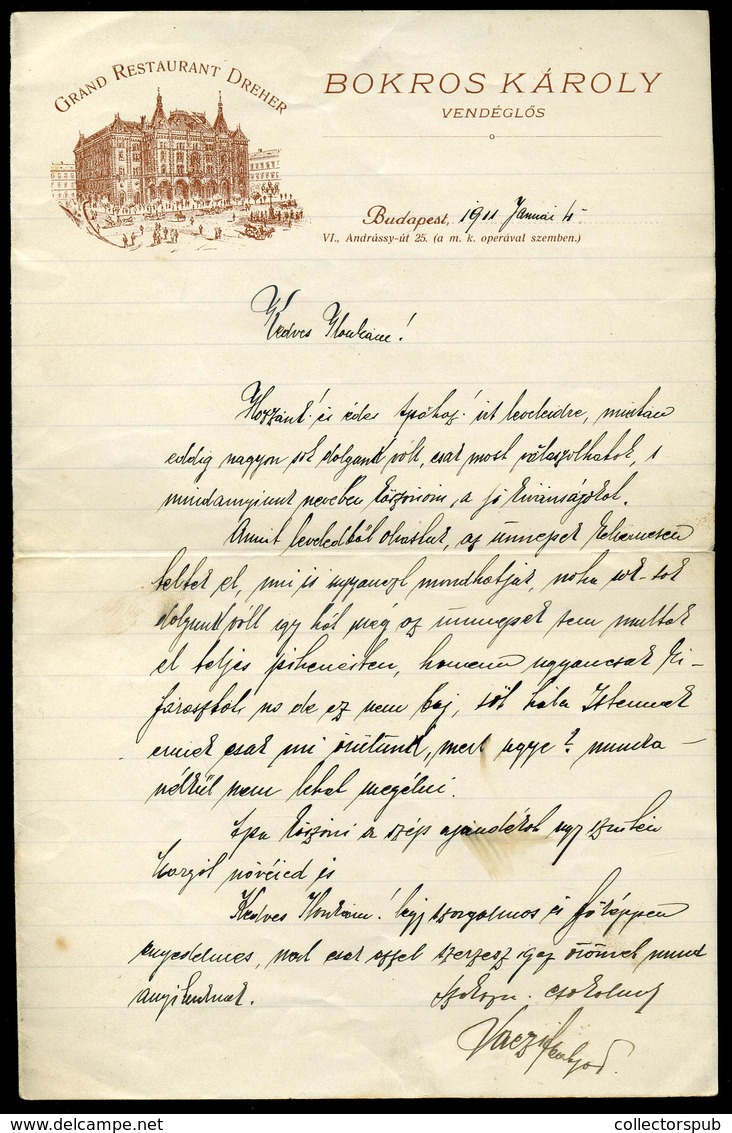 GRAND RESTAURANT DREHER
BOKROS KÁROLY
VENDÉGLŐS
Budapest, 1911 Január
VI., Andrássy-út 25. (a m. k. operával szemben.)
Kedves Ilonkám!
Hozzánk! és édes Apához! írt leveleidre, miután
eddig nagyon sok dolgunk volt, csak most válaszolhatok, s
mindannyiunk nevében köszönöm a jó kívánságokat.
Amint leveledből olvastuk, az ünnepek kellemesen
teltek el, mi is ugyanezt mondhatjuk, noha sok-sok
dolgunk volt így hát még az ünnepek sem multak
el teljes pihenésben, hanem ugyancsak ki-
fárasztók, no de ez nem baj, sőt hála Istennek
ennek csak mi örülünk, mert ugye? munka
nélkül nem lehet megélni.
Apa köszöni a szép ajándékot úgy szintén
Margit nővéred is
Kedves Ilonkám! légy szorgalmos és főképpen
engedelmes, mert csak azzal szerzesz igaz örömet mind
anyiunknak. csokolunk
collectorspub.com